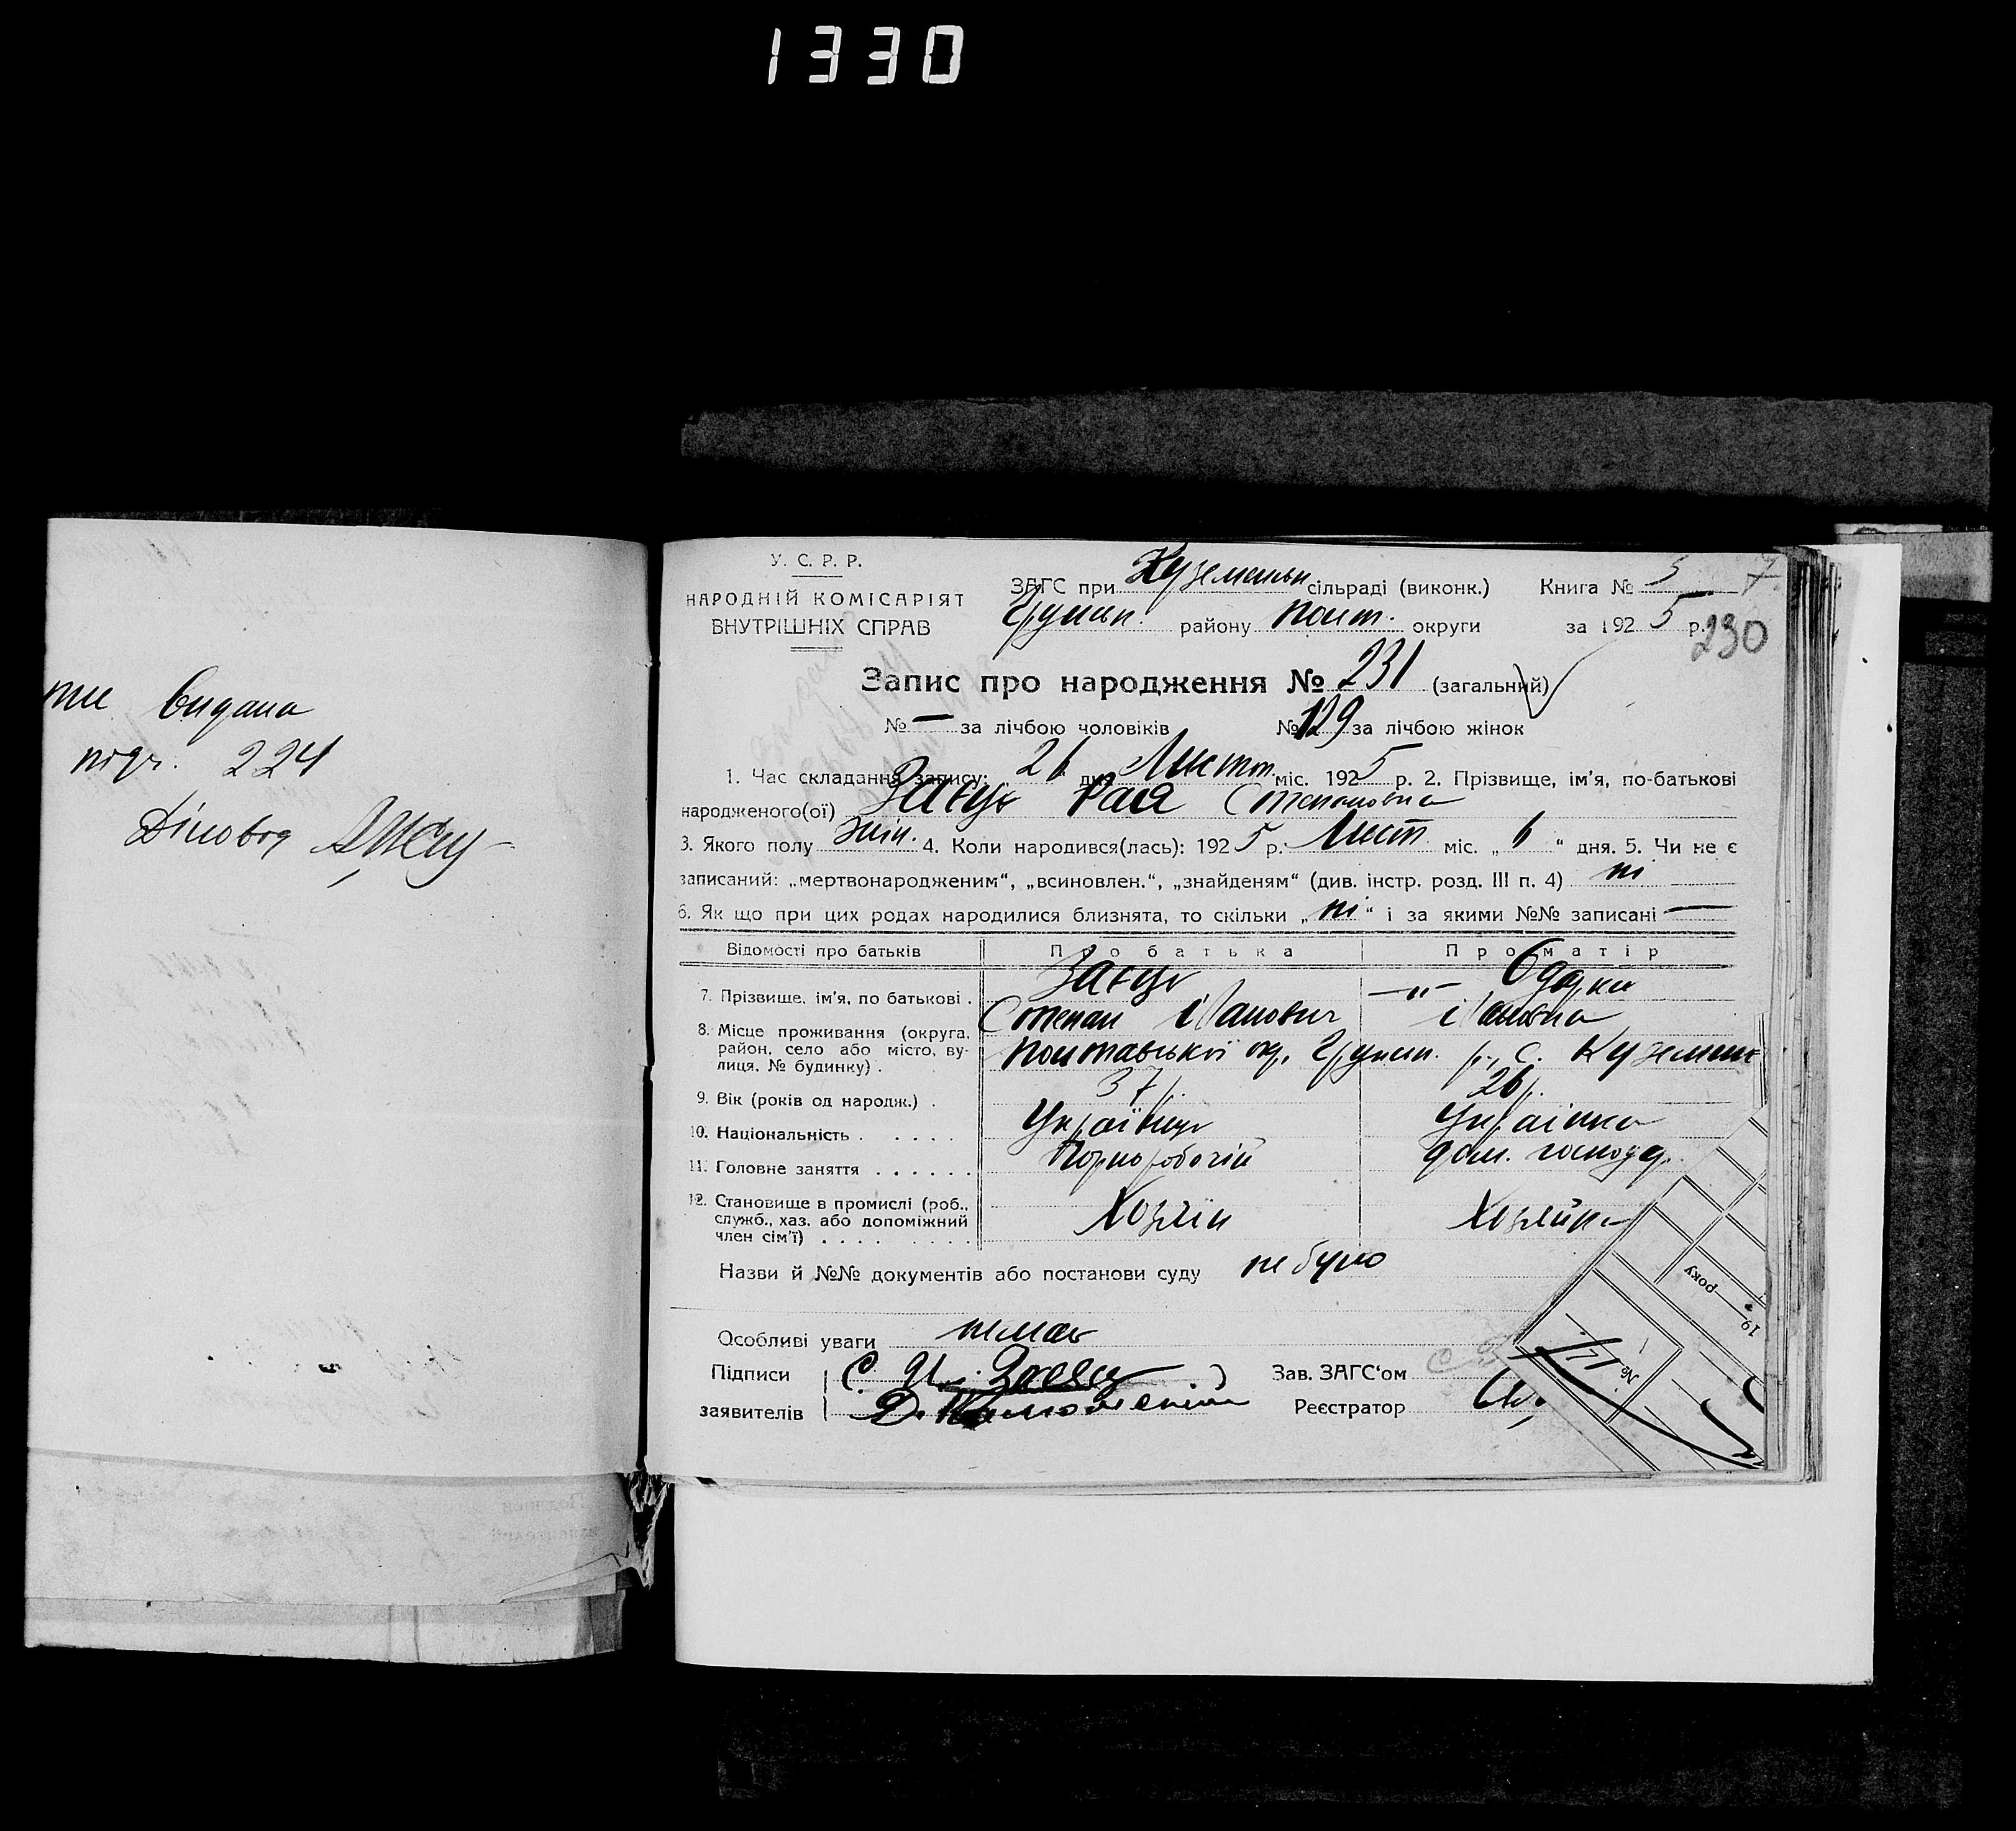 1330
ти видана
підч. 224
Діловод
У. С. Р. Р.
НАРОДНІЙ КОМІСАРІЯТ
ВНУТРІШНІХ СПРАВ
ЗАГС при Куземиньс. сільраді (виконк.)
Груньс. району Полт. округи
Книга № 5 7
за 1925 р.
230
Запис про народження № 231 (загальний)
№ — за лічбою чоловіків № 129 за лічбою жінок
1. Час складання запису: „ 26 “ дня Листоп. міс. 1925 р. 2. Прізвище, ім'я, по-батькові
народженого(ої) Заєць Рая Степановна
3. Якого полу жін. 4. Коли народився(лась): 1925 р. Лист. міс. „ 6 “ дня. 5. Чи не є
записаний: „мертвонародженим“, „всиновлен.“, „знайденям“ (див. інстр. розд. III п. 4) ні
6. Як що при цих родах народилися близнята, то скільки „ ні “ і за якими №№ записані —
Відомості про батьків Про батька Про матір
7. Прізвище, ім'я, по батькові . Заєць Степан іванович —„— Одарка івановна
8. Місце проживання (округа, район, село або місто, вулиця, № будинку) . Полтавської окр. Груньс. р., с. Куземин
9. Вік (років од народж.) . 37 р. 26 р.
10. Національність . . . . . Українець Українка
11. Головне заняття . . . . . . Чорноробочій дом. господ.
12. Становище в промислі (роб., служб., хаз. або допоміжний член сім'ї) . . . . Хозяїн Хозяйка
Назви й №№ документів або постанови суду не було
Особливі уваги немає
Підписи С. И. Заєць
заявителів Д.
Зав. ЗАГС'ом
Реєстратор
року
19
№